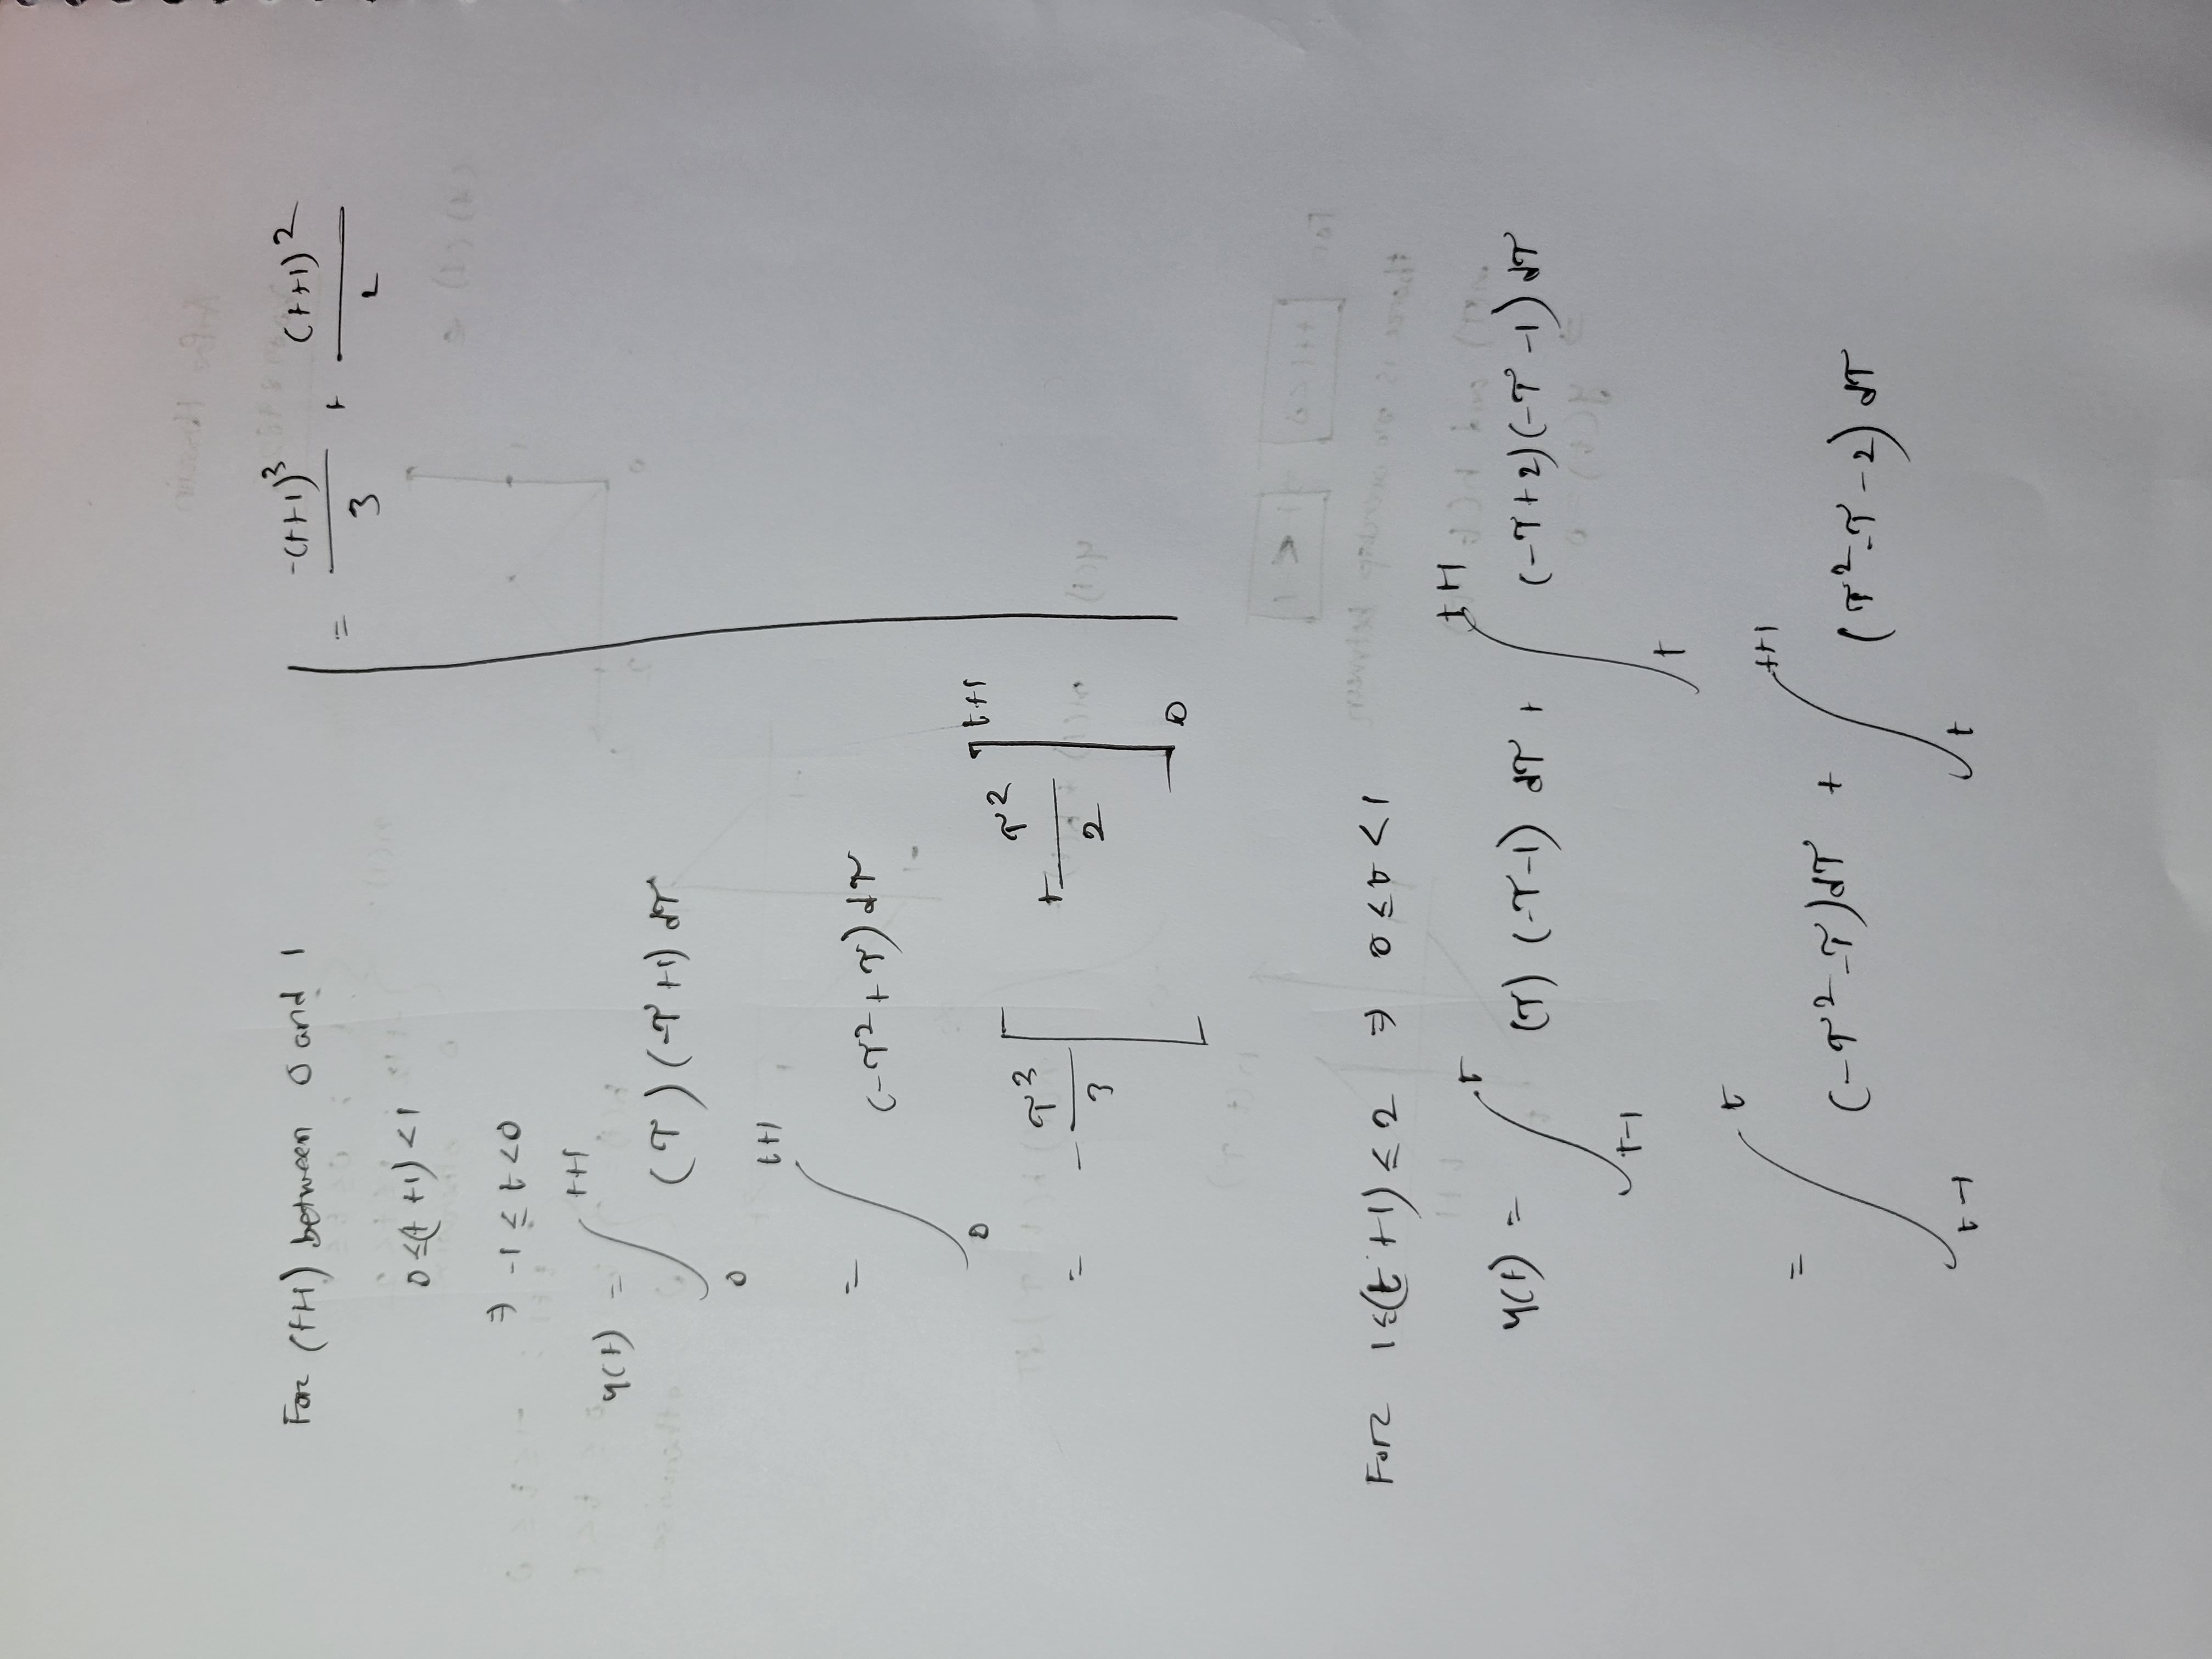 For (t+1) between 0 and 1
0 ≤ (t +1) < 1
⇒ -1 ≤ t < 0
y(t) = ∫_0^{t+1} (τ) (-τ +1) dτ
= ∫_0^{t+1} (-τ² + τ) dτ
= - τ³/3 [ + τ²/2 ]_0^{t+1}
= -(t+1)³/3 + (t+1)²/2
For 1 ≤ (t +1) ≤ 2 ⇒ 0 ≤ t < 1
y(t) = ∫_{t-1}^{t} (τ) (-τ-1) dτ + ∫_{t}^{t+1} (-τ+2) (-τ -1) dτ
= ∫_{t-1}^{t} (-τ² -τ) dτ + ∫_{t}^{t+1} (τ² -τ -2) dτ